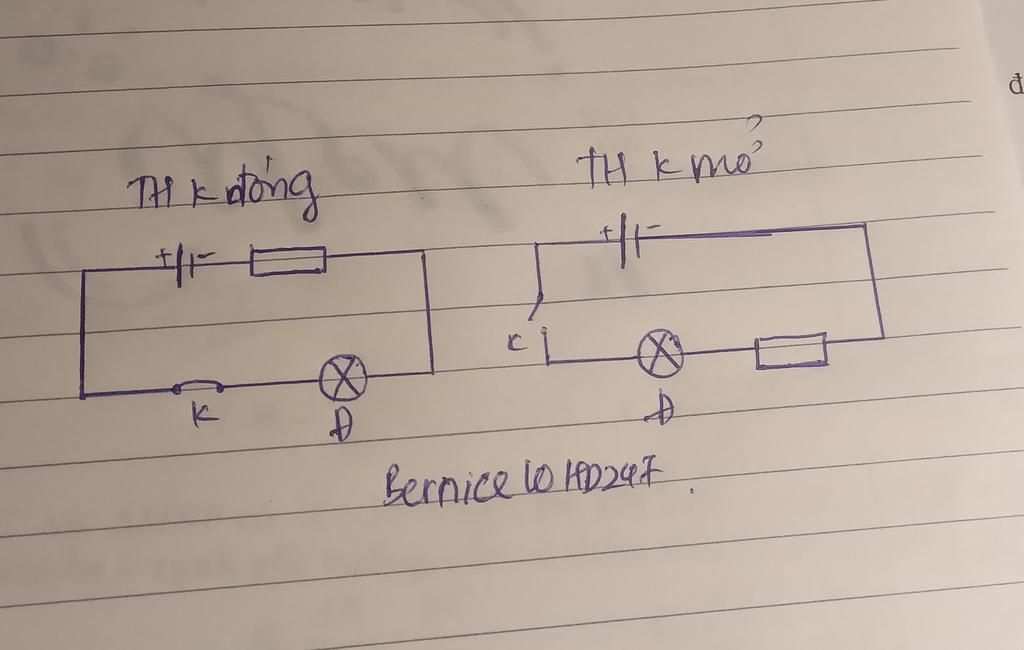 TH K đóng
TH K mở
+ -
+ -
K
Đ
C
Đ
Bernice W HD247.
đ